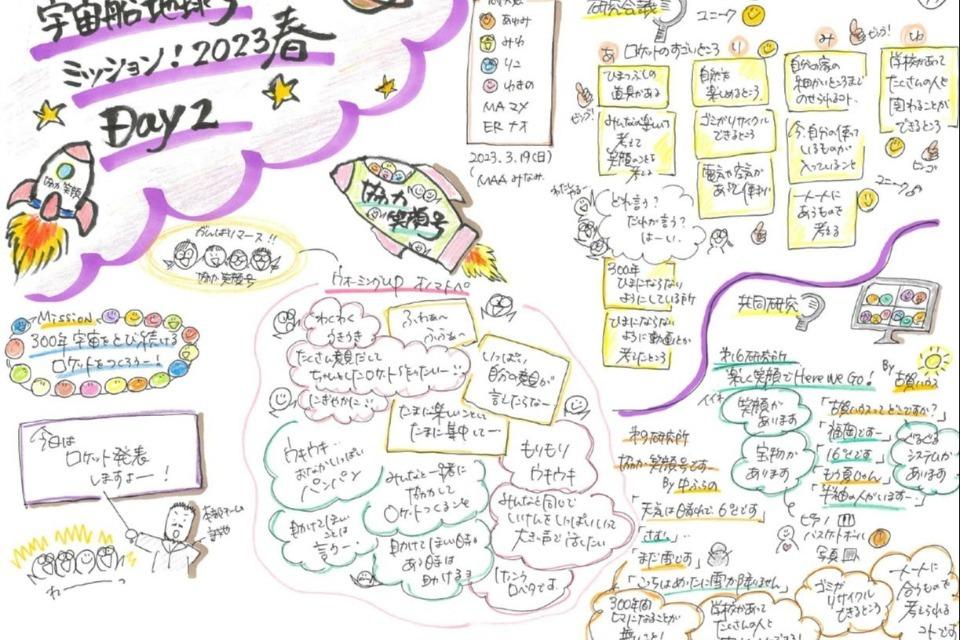 宇宙船地球号
ミッション！2023春
Day2
協力笑顔
協力
笑顔号
がんばりマース!!
協力笑顔号
Mission
300年宇宙をとび続ける
ロケットをつくろうー！
今日は
ロケット発表
しますよー！
わー
あゆみ
みゆ
りこ
ゆきの
MA マメ
ER ナオ
2023.3.19(日)
(MAA みなみ
ウォーミングup オノマトペ
わくわく
うきうき
ふわぁ〜
たくさん意見だして
ちゃんとしたロケット作りたいー
にぎやかに
いっぱい
自分の意見が
言えたらなー
たまに楽しいこといい
たまに集中してー
ウキウキ
おなかいっぱい
パンパン
みんなと一緒に
協力して
ロケットつくることを
もりもり
ウキウキ
助けてほしい
ことは
言うー
助けてほしい時が
ある時は
助けるよ
大きい声で話したい
研究会議
ユニーク
あ ロケットのすごいところ り み ゆ
ひまつぶしの
道具がある
みんなの楽しいを
考えて
笑顔のことも
考える
自然を
楽しめるところ
ゴミがリサイクル
できるところ
電気や空気が
あって便利
自分の家の
細かいところまで
のせられるコト
今、自分の使って
いるものが
入っていること
一人一人に
あるもので
考える
学校があって
たくさんの人と
関わることが
できるところ
ビンゴ
ユニーク
どれ言う？
だれが言う？
はーい
300年
ひまにならない
ようにしている所
ひまにならない
ように動画とか
考えたところ
共同研究
第16研究所
楽しく笑顔でHere We Go!
By
古賀ハウス
イイネ
笑顔が
あります
宝物が
あります
「古賀ハウスってどこですか？」
「福岡ですー」
「16℃です」
「もう夏じゃん」
「半袖の人がいますー」
ぐるぐる
システムが
あります
第9研究所
協力笑顔号ですー
By 中ふらの
天気は 6℃です
「まだ雪です」
「こっちはめったに雪が降りません」
ピアノ
バスケットボール
写真
300年間
ヒマになることが
無いこと！
学校があって
たくさんの人と
ゴミが
リサイクル
できるところ
一人一人に
合うもので
考えられる
コトです